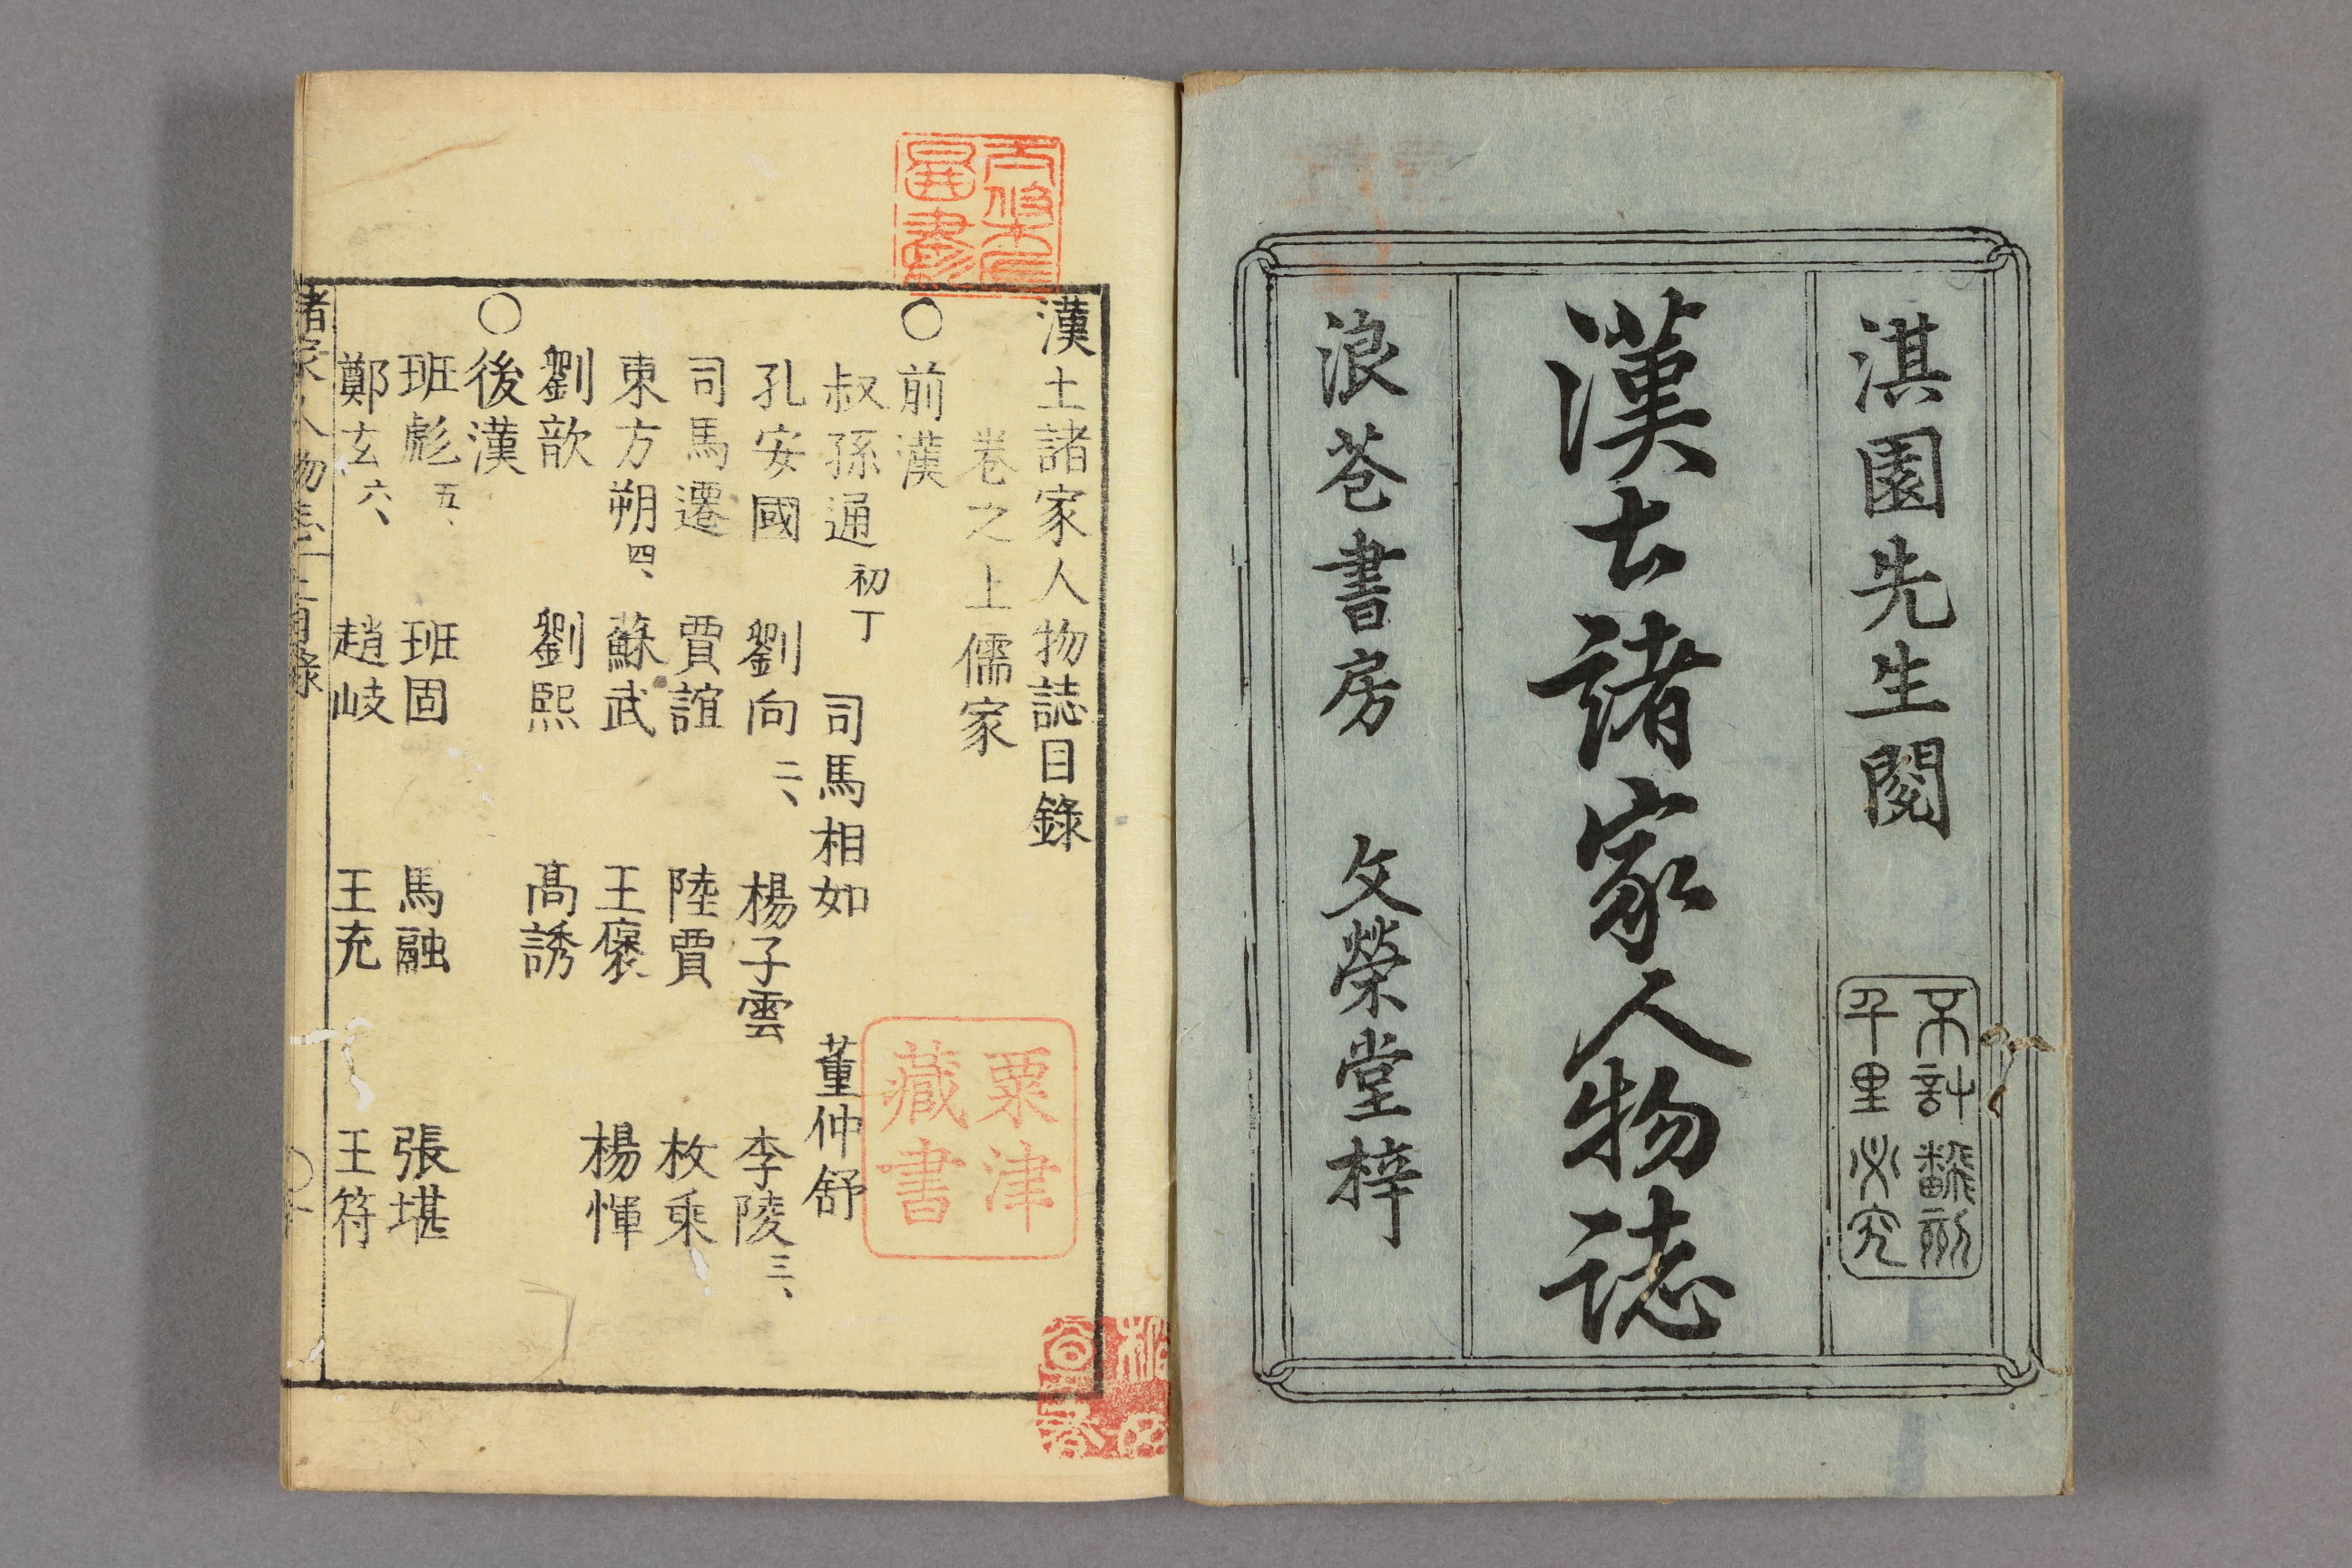 淇園先生閱
不計飜刻
千里必究
漢土諸家人物誌
浪華書房 文榮堂梓
漢土諸家人物誌目錄
卷之上 儒家
○前漢
叔孫通 初丁 司馬相如 董仲舒
孔安國 劉向 二、 楊子雲 李陵 三、
司馬遷 賈誼 陸賈 枚乘
東方朔 四、 蘇武 王褒 楊惲
劉歆 劉熙 高誘
○後漢
班彪 五、 班固 馬融 張堪
鄭玄 六、 趙岐 王充 王符
諸家人物志 上目錄
粟津
藏書